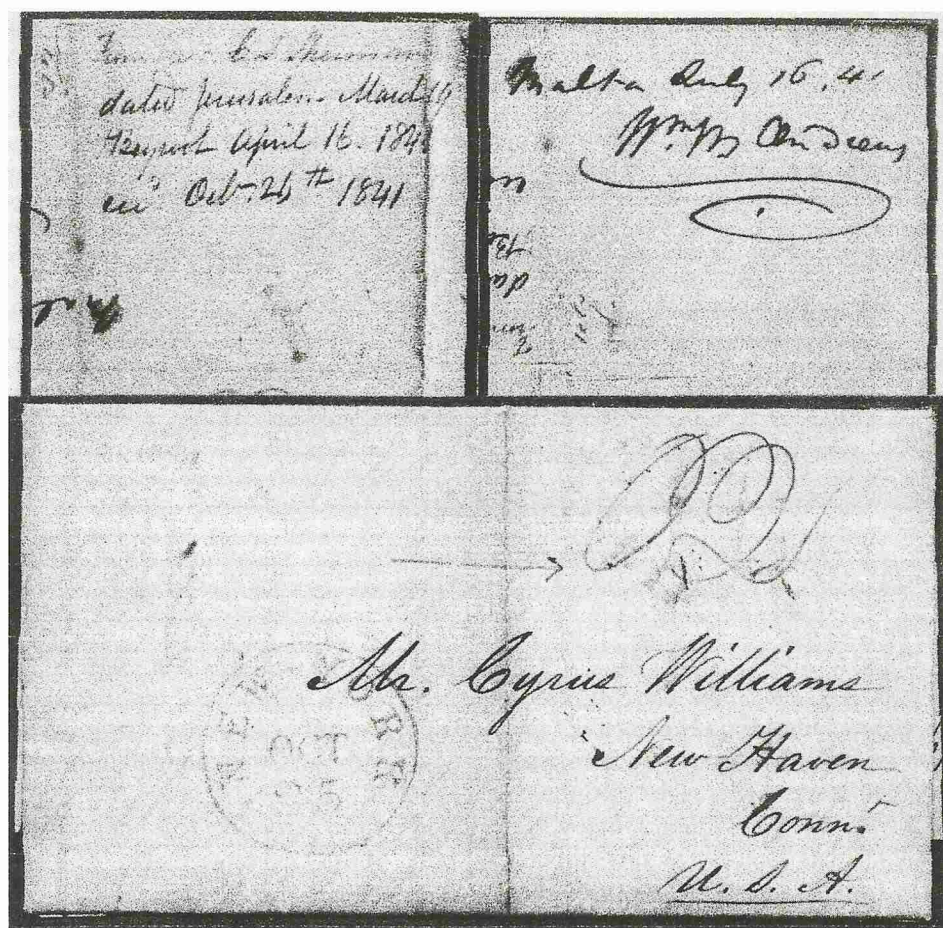 C S Sherman
dated Jerusalem March 19
Beyroot April 16. 1841
Oct. 26th 1841
Malta July 16. 41
Wm Andrews
Mr. Cyrus Williams
New Haven
Conn.
U. S. A.
NEW YORK
OCT
25